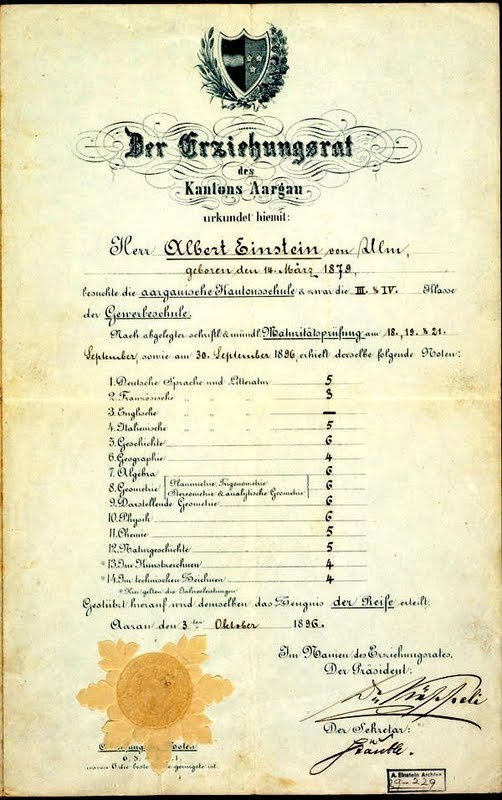 Der Erziehungsrat
des
Kantons Aargau
urkundet hiemit:
Herr Albert Einstein von Ulm,
geboren den 14. März 1879,
besuchte die aargauische Kantonsschule & zwar die III. & IV. Klasse
der Gewerbeschule.
Nach abgelegter schriftl. & mündl. Maturitätsprüfung am 18., 19. & 21.
September, sowie am 30. September 1896, erhielt derselbe folgende Noten:
1. Deutsche Sprache und Litteratur 5
2. Französische " " " 3
3. Englische " " " —
4. Italienische " " " 5
5. Geschichte 6
6. Geographie 4
7. Algebra 6
8. Geometrie [Planimetrie, Trigonometrie 6
Stereometrie & analytische Geometrie]
9. Darstellende Geometrie 6
10. Physik 6
11. Chemie 5
12. Naturgeschichte 5
*13. Im Kunstzeichnen 4
*14. Im technischen Zeichnen 4
*Hier gelten die Jahresleistungen
Gestützt hierauf wird demselben das Zeugnis der Reife erteilt.
Aarau den 3ten Oktober 1896.
Im Namen des Erziehungsrates,
Der Präsident:
Der Sekretär:
Noten
6. 5. 1.
A. Einstein Archive
29-229